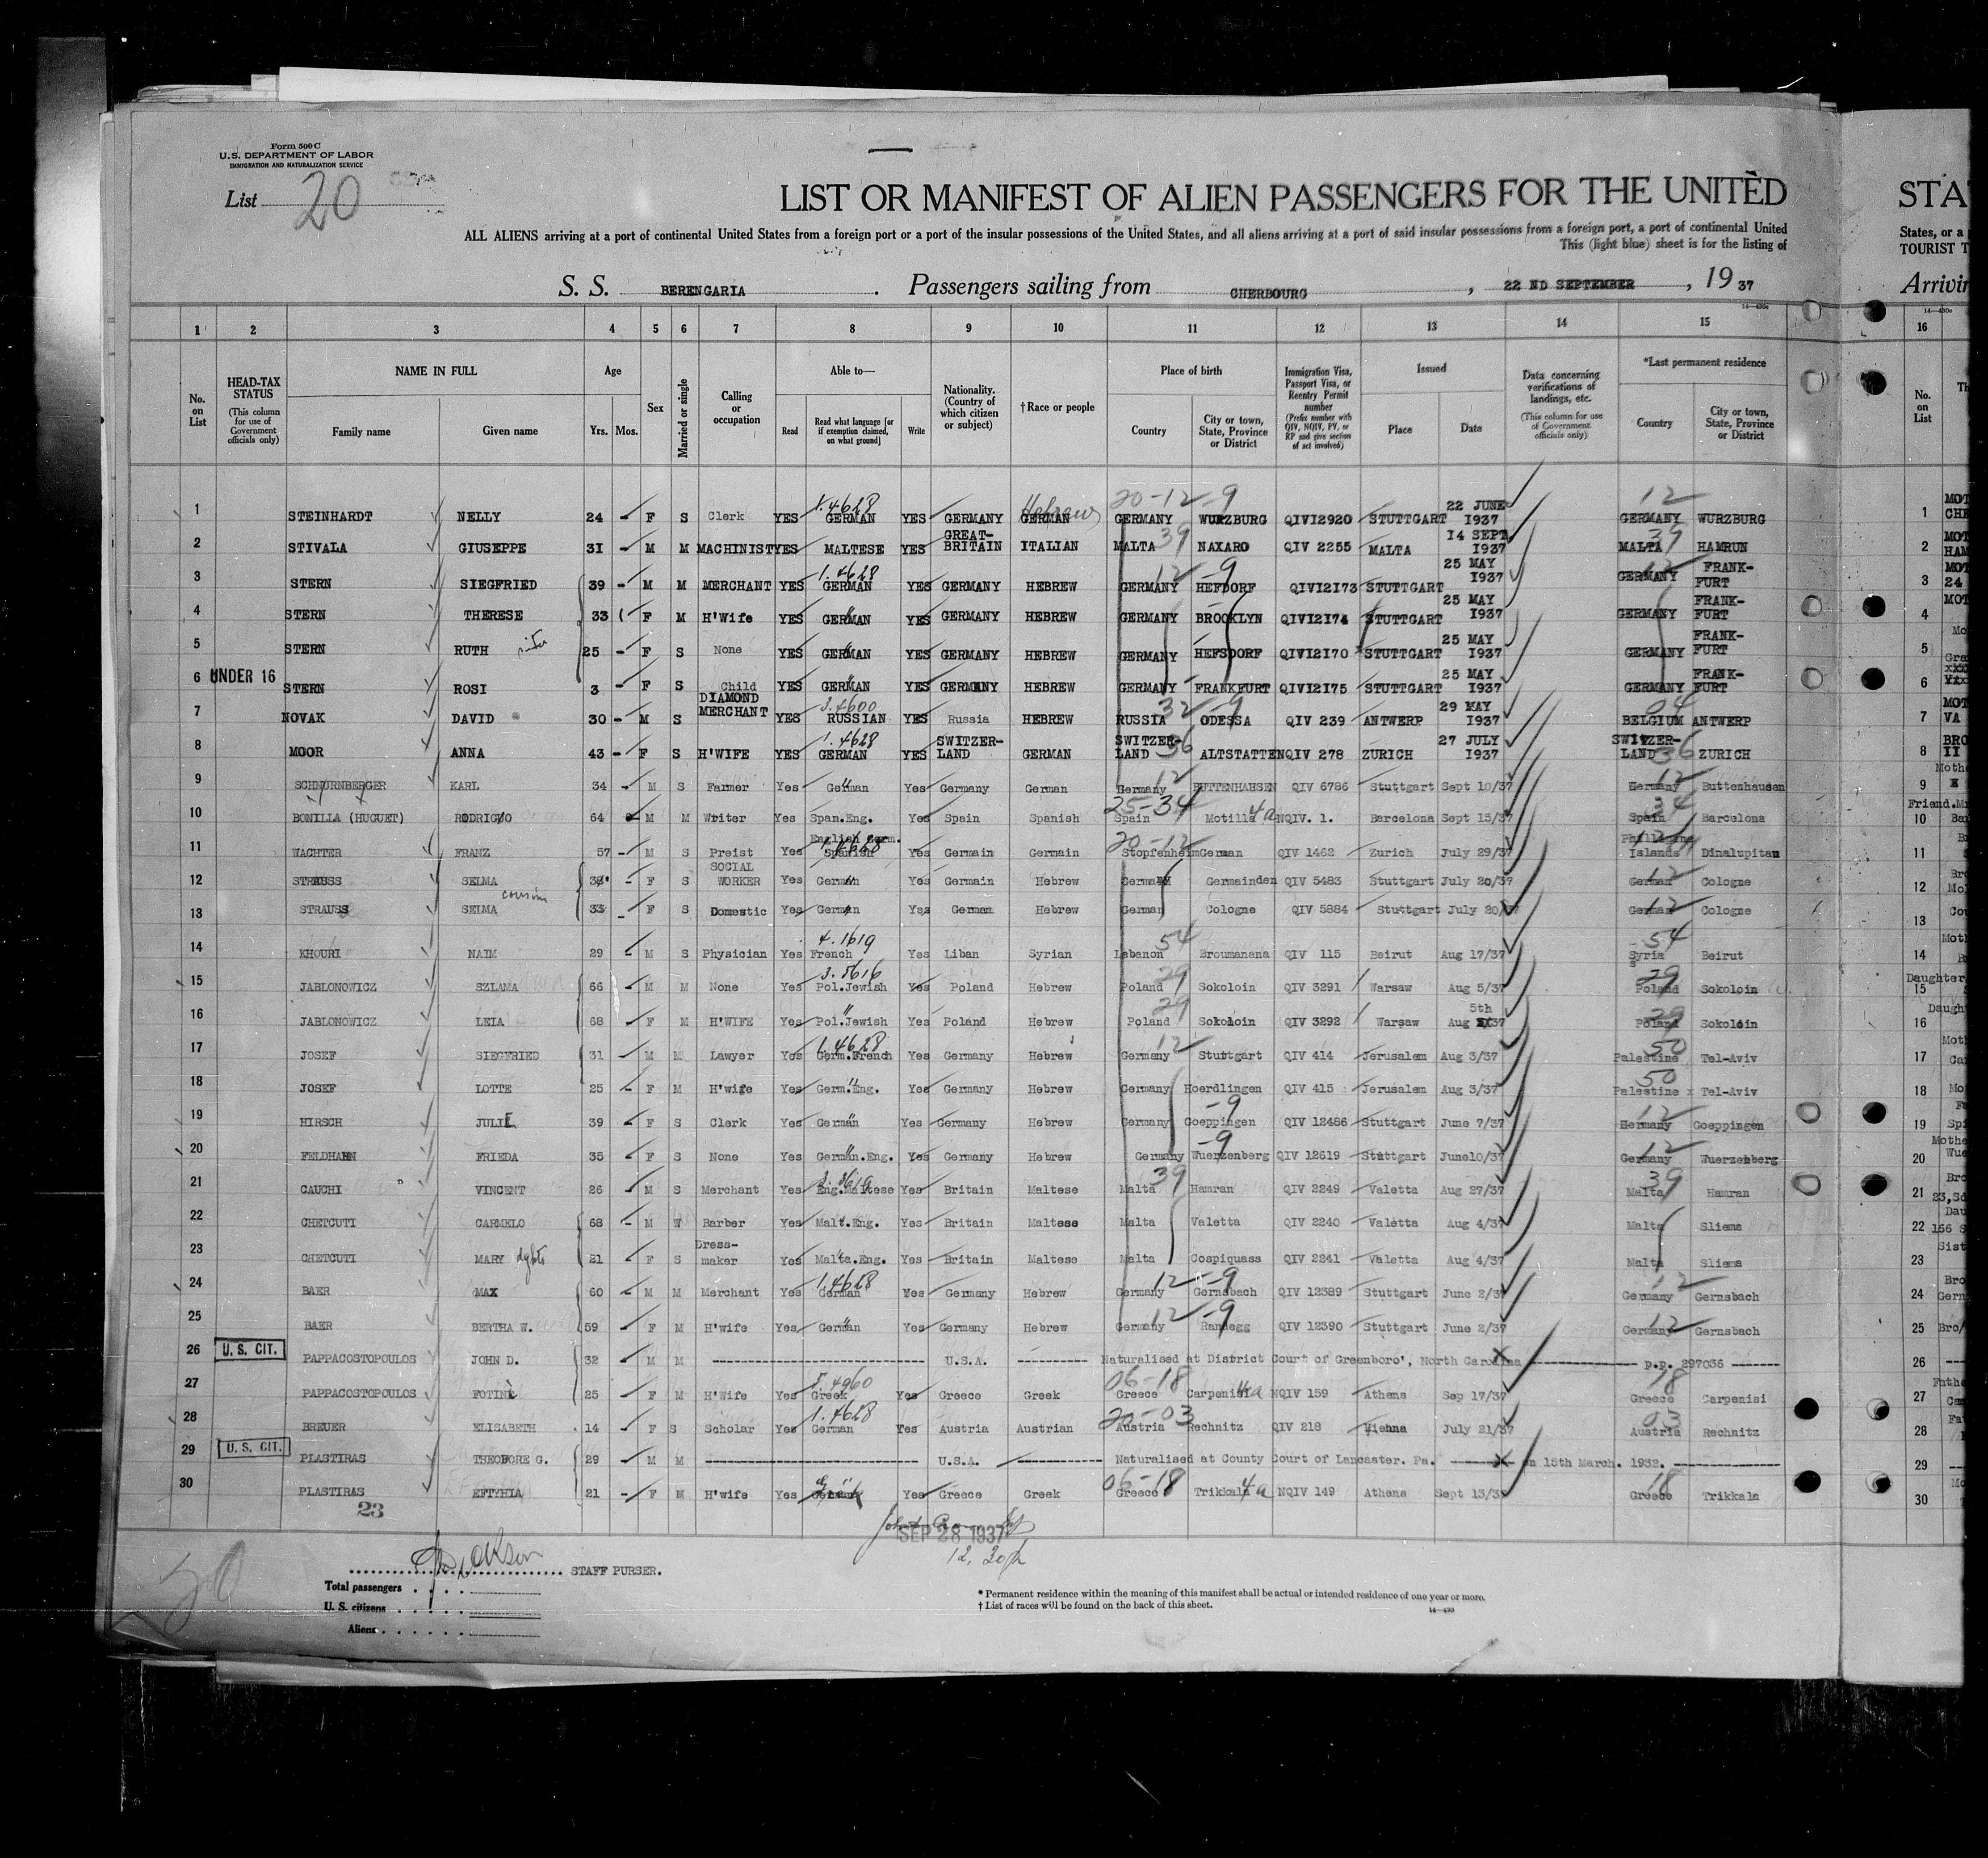 Form 500 C
U.S. DEPARTMENT OF LABOR
IMMIGRATION AND NATURALIZATION SERVICE
List 20
LIST OR MANIFEST OF ALIEN PASSENGERS FOR THE UNITED
STA
ALL ALIENS arriving at a port of continental United States from a foreign port or a port of the insular possessions of the United States, and all aliens arriving at a port of said insular possessions from a foreign port, a port of continental United
States, or a
This (light blue) sheet is for the listing of
TOURIST T
S. S. BERENGARIA . Passengers sailing from CHERBOURG , 22 ND SEPTEMBER , 19 37
Arrivin
1 2 3 4 5 6 7 8 9 10 11 12 13 14 15 16
No. on List
HEAD-TAX STATUS (This column for use of Government officials only)
NAME IN FULL Family name Given name
Age Yrs. Mos.
Sex
Married or single
Calling or occupation
Able to— Read Read what language [or if exemption claimed, on what ground] Write
Nationality. (Country of which citizen or subject)
† Race or people
Place of birth Country City or town, State, Province or District
Immigration Visa, Passport Visa, or Reentry Permit number (Prefix number with QIV, NQIV, PV, or RP and give section of act involved)
Issued Place Date
Data concerning verifications of landings, etc. (This column for use of Government officials only)
*Last permanent residence Country City or town, State, Province or District
No. on List
1 STEINHARDT NELLY 24 - F S Clerk YES 1.4628 GERMAN YES GERMANY GERMAN Hebrew 20-12-9 GERMANY WURZBURG QIVI2920 STUTTGART 22 JUNE I937 12 GERMANY WURZBURG 1
2 STIVALA GIUSEPPE 3I - M M MACHINIST YES MALTESE YES GREAT-BRITAIN ITALIAN MALTA 39 NAXARO QIV 2255 MALTA 14 SEPT I937 MALTA 39 HAMRUN 2
3 STERN SIEGFRIED 39 - M M MERCHANT YES 1.4628 GERMAN YES GERMANY HEBREW 12 -9 GERMANY HEFDORF QIVI2I73 STUTTGART 25 MAY I937 GERMANY 12 FRANK-FURT 3
4 STERN THERESE 33 F M H'Wife YES GERMAN YES GERMANY HEBREW GERMANY BROOKLYN QIVI2I74 STUTTGART 25 MAY I937 GERMANY FRANK-FURT 4
5 STERN RUTH sister 25 - F S None YES GERMAN YES GERMANY HEBREW GERMANY HEFSDORF QIVI2I70 STUTTGART 25 MAY I937 GERMANY FRANK-FURT 5
6 UNDER 16 STERN ROSI 3 - F S Child YES GERMAN YES GERMANY HEBREW GERMANY FRANKFURT QIVI2I75 STUTTGART 25 MAY I937 GERMANY FRANK-FURT 6
7 NOVAK DAVID 30 - M S DIAMOND MERCHANT YES 3.4600 RUSSIAN YES Russia HEBREW RUSSIA 32 -9 ODESSA QIV 239 ANTWERP 29 MAY I937 04 BELGIUM ANTWERP 7
8 MOOR ANNA 43 - F S H'WIFE YES 1.4628 GERMAN YES SWITZER-LAND GERMAN SWITZER-LAND 36 ALTSTATTEN QIV 278 ZURICH 27 JULY I937 SWITZER-LAND 36 ZURICH 8
9 SCHNURNBERGER KARL 34 - M S Farmer Yes German Yes Germany German 12 Germany BUTTENHAHSEN QIV 6786 Stuttgart Sept 10/37 12 Germany Buttenhausen 9
10 BONILLA (HUGUET) RODRIGO 64 M M Writer Yes Span.Eng. Yes Spain Spanish 25-34 Spain Motilla 4a NQIV. 1. Barcelona Sept 15/37 34 Spain Barcelona 10
11 WACHTER FRANZ 57 - M S Preist Yes English Germ. 1.4628 Spanish Yes Germain Germain 20-12 Stopfenheim German QIV 1462 Zurich July 29/37 Phillipine Islands Dinalupitan 11
12 STRAUSS SELMA 38 - F S SOCIAL WORKER Yes German Yes Germain Hebrew Germany Germainden QIV 5483 Stuttgart July 20/37 12 German Cologne 12
13 STRAUSS SELMA cousin 33 - F S Domestic Yes German Yes German Hebrew German Cologne QIV 5884 Stuttgart July 20/37 12 German Cologne 13
14 KHOURI NAIM 29 - M S Physician Yes 4.1619 French Yes Liban Syrian 54 Lebanon Broumanana QIV 115 Beirut Aug 17/37 54 Syria Beirut 14
15 JABLONOWICZ SZLAMA 66 - M M None Yes 3.8616 Pol.Jewish Yes Poland Hebrew 29 Poland Sokoloin QIV 3291 Warsaw Aug 5/37 29 Poland Sokoloin 15
16 JABLONOWICZ LEIA 68 - F M H'WIFE Yes Pol.Jewish Yes Poland Hebrew 29 Poland Sokoloin QIV 3292 Warsaw 5th Aug /37 29 Poland Sokoloin 16
17 JOSEF SIEGFRIED 31 - M M Lawyer Yes 1.4628 Germ.French Yes Germany Hebrew 12 Germany Stuttgart QIV 414 Jerusalem Aug 3/37 50 Palestine Tel-Aviv 17
18 JOSEF LOTTE 25 - F M H'wife Yes Germ.Eng. Yes Germany Hebrew Germany Hoerdlingen QIV 415 Jerusalem Aug 3/37 50 Palestine x Tel-Aviv 18
19 HIRSCH JULIE 39 - F S Clerk Yes German Yes Germany Hebrew Germany -9 Goeppingen QIV 12486 Stuttgart June 7/37 12 Germany Goeppingen 19
20 FELDHAHN FRIEDA 35 - F S None Yes German.Eng. Yes Germany Hebrew Germany -9 Wuerzenberg QIV 12619 Stuttgart June10/37 12 Germany Wuerzenberg 20
21 CAUCHI VINCENT 26 - M S Merchant Yes Eng.Maltese Yes Britain Maltese Malta 39 Hamran QIV 2249 Valetta Aug 27/37 39 Malta Hamran 21
22 CHETCUTI CARMELO 68 - M W Barber Yes Malt.Eng. Yes Britain Maltese Malta Valetta QIV 2240 Valetta Aug 4/37 Malta Sliema 22
23 CHETCUTI MARY dghtr 21 F S Dress-maker Yes Malta.Eng. Yes Britain Maltese Malta Cospiquass QIV 2241 Valetta Aug 4/37 Malta Sliema 23
24 BAER MAX 60 - M M Merchant Yes 1.4628 German Yes Germany Hebrew 12 -9 Germany Gernsbach QIV 12389 Stuttgart June 2/37 12 Germany Gernsbach 24
25 BAER BERTHA W. 59 - F M H'wife Yes German Yes Germany Hebrew 12 -9 Germany Randegg QIV 12390 Stuttgart June 2/37 12 Germany Gernsbach 25
26 U. S. CIT. PAPPACOSTOPOULOS JOHN D. 32 M M U.S.A. Naturalised at District Court of Greenboro', North Carolina p.p. 297036 26
27 PAPPACOSTOPOULOS FOTINI 25 F M H'Wife Yes 5.4960 Greek Yes Greece Greek 06-18 Greece Carpenisi 4a NQIV 159 Athens Sep 17/37 18 Greece Carpenisi 27
28 BREUER ELISABETH 14 - F S Scholar Yes 1.4628 German Yes Austria Austrian 20-03 Austria Rechnitz QIV 218 Vienna July 21/37 03 Austria Rechnitz 28
29 U. S. CIT. PLASTIRAS THEODORE G. 29 M M U.S.A. Naturalised at County Court of Lancaster. Pa. on 15th March. 1932. 29
30 PLASTIRAS EFTYHIA 21 - F M H'wife Yes Greek Yes Greece Greek 06-18 Greece Trikkala 4a NQIV 149 Athens Sept 13/37 18 Greece Trikkala 30
23
SEP 28 1937
STAFF PURSER.
Total passengers
U. S. citizens
Aliens
* Permanent residence within the meaning of this manifest shall be actual or intended residence of one year or more.
† List of races will be found on the back of this sheet.
14—430